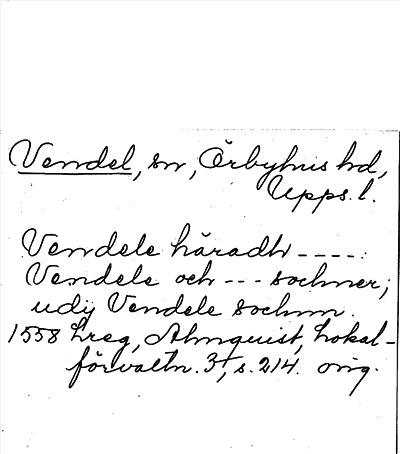 Vendel, sn, Örbyhus hd,
Upps. l.
Vendele häradh ----:
Vendele och --- sochner;
udij Vendele sochnn.
1558 Lreg, Almquist, Lokal-
förvaltn. 3, s. 214. orig.